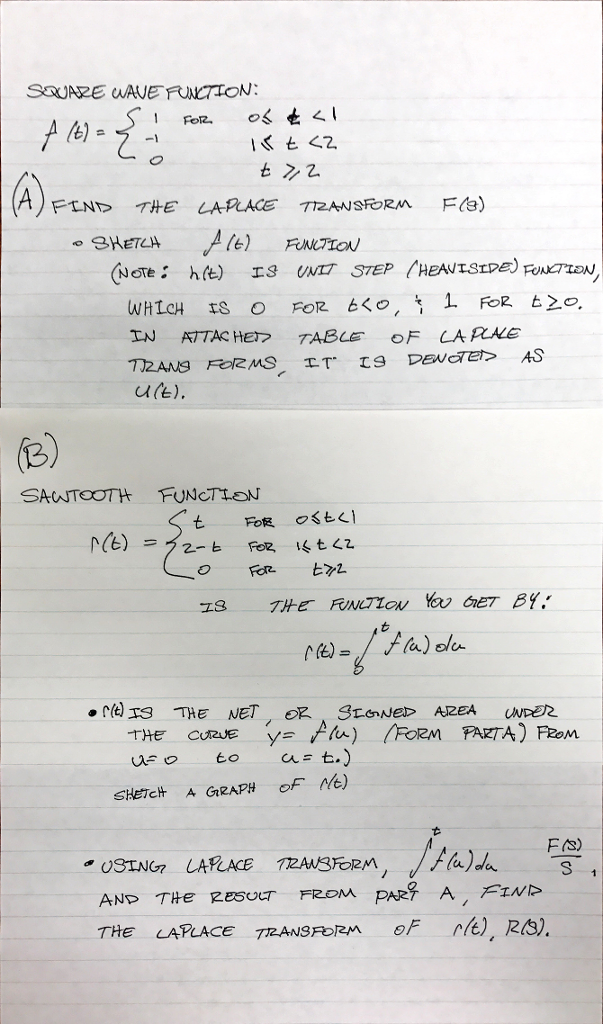 SQUARE WAVE FUNCTION:
f(t) = { 1 FOR 0 ≤ t < 1
-1 1 ≤ t < 2
0 t ≥ 2
(A) FIND THE LAPLACE TRANSFORM F(s)
• SKETCH f(t) FUNCTION
(NOTE: h(t) IS UNIT STEP (HEAVISIDE) FUNCTION,
WHICH IS 0 FOR t<0, & 1 FOR t≥0.
IN ATTACHED TABLE OF LAPLACE
TRANSFORMS, IT IS DENOTED AS
u(t).
(B)
SAWTOOTH FUNCTION
r(t) = { t FOR 0≤t<1
2-t FOR 1≤t<2
0 FOR t≥2
IS THE FUNCTION YOU GET BY:
r(t) = ∫₀ᵗ f(u) du
• r(t) IS THE NET, OR SIGNED AREA UNDER
THE CURVE y= f(u) (FORM PART A) FROM
u=0 to u=t.)
SKETCH A GRAPH OF r(t)
• USING LAPLACE TRANSFORM, ∫₀ᵗ f(u)du F(s)/s,
AND THE RESULT FROM PART A, FIND
THE LAPLACE TRANSFORM OF r(t), R(s).